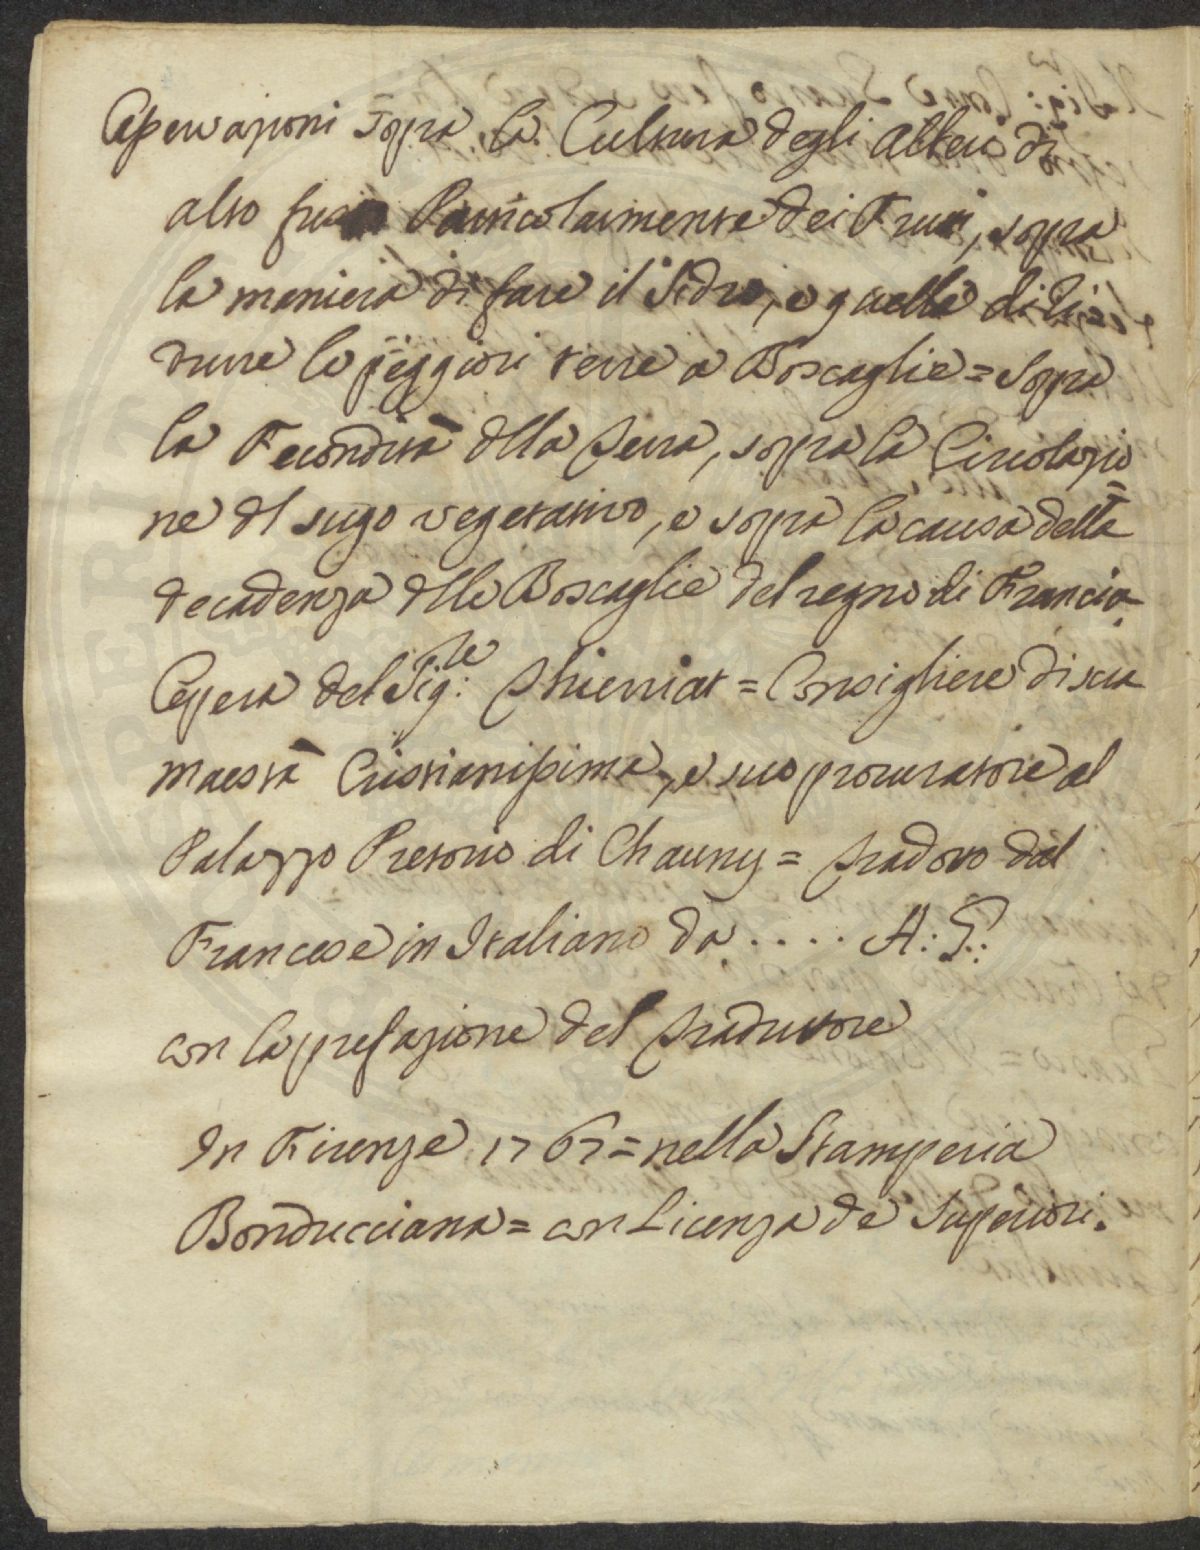 Osservazioni Sopra la Cultura degli Alberi di
alto fusto Particolarmente dei Frutti, sopra
la maniera di fare il Sidro, e quella di Ri=
durre le peggiori terre a Boscaglie = Sopra
la Fecondità dlla Terra, sopra la Circolazio=
ne dl sugo vegetativo, e sopra la causa della
decadenza dlle Boscaglie del regno di Francia
Opera del Sig:re Thierriat = Consigliere di sua
maestà Cristianissima, e suo procuratore al
Palazzo Pretorio di Chauny = Tradotto dal
Francese in Italiano da .... A: G:
con la prefazione del Traduttore
In Firenze 1767 = nella Stamperia
Bonducciana = con Licenza de Superiori.